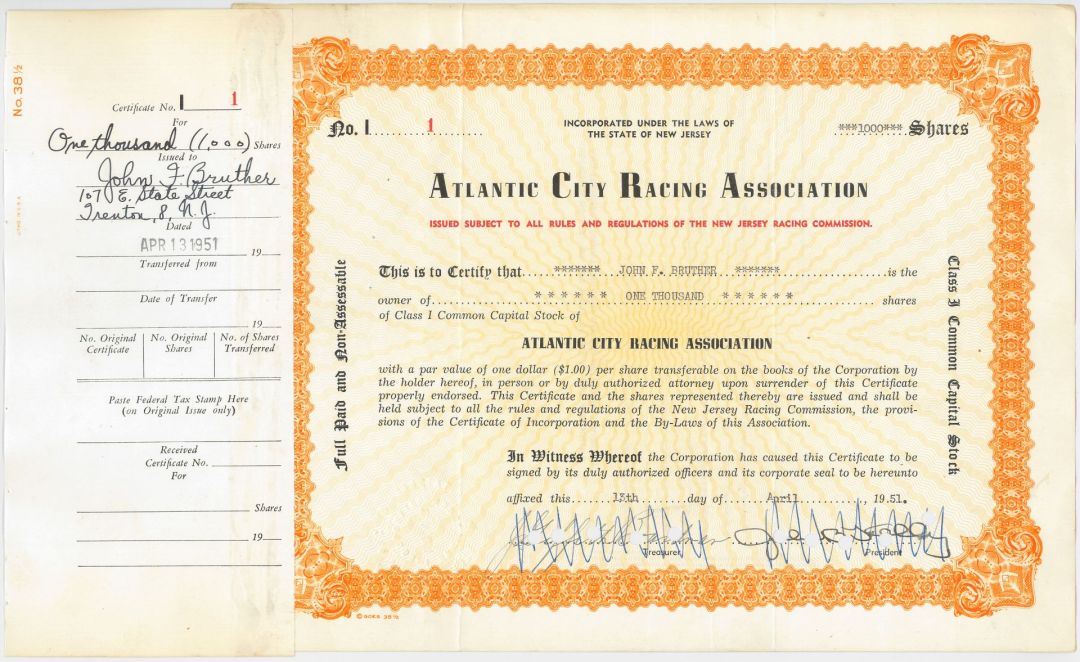 No. 38 ½
Certificate No. I 1
For
One thousand (1,000) Shares
Issued to
John F. Bruther
107 E. State Street
Trenton, 8, N.J.
Dated
APR 13 1951 19
Transferred from
Date of Transfer
19
No. Original Certificate
No. Original Shares
No. of Shares Transferred
Paste Federal Tax Stamp Here
(on Original Issue only)
Received
Certificate No.
For
Shares
19
No. I 1
INCORPORATED UNDER THE LAWS OF
THE STATE OF NEW JERSEY
***1000*** Shares
ATLANTIC CITY RACING ASSOCIATION
ISSUED SUBJECT TO ALL RULES AND REGULATIONS OF THE NEW JERSEY RACING COMMISSION.
Full Paid and Non-Assessable
This is to Certify that ******* JOHN F. BRUTHER ******* is the
owner of * * * * * * ONE THOUSAND * * * * * * shares
of Class I Common Capital Stock of
ATLANTIC CITY RACING ASSOCIATION
with a par value of one dollar ($1.00) per share transferable on the books of the Corporation by
the holder hereof, in person or by duly authorized attorney upon surrender of this Certificate
properly endorsed. This Certificate and the shares represented thereby are issued and shall be
held subject to all the rules and regulations of the New Jersey Racing Commission, the provi-
sions of the Certificate of Incorporation and the By-Laws of this Association.
In Witness Whereof the Corporation has caused this Certificate to be
signed by its duly authorized officers and its corporate seal to be hereunto
affixed this 13th day of April, 1951.
Treasurer
President
Class I Common Capital Stock
© GOES 38 ½